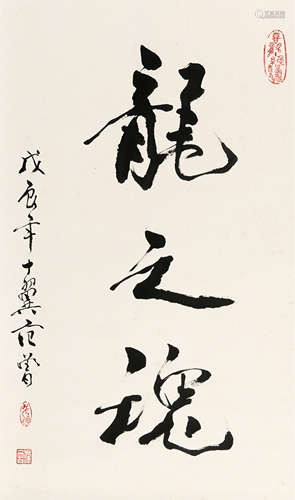 龍之魂
戊辰年十翼范曾